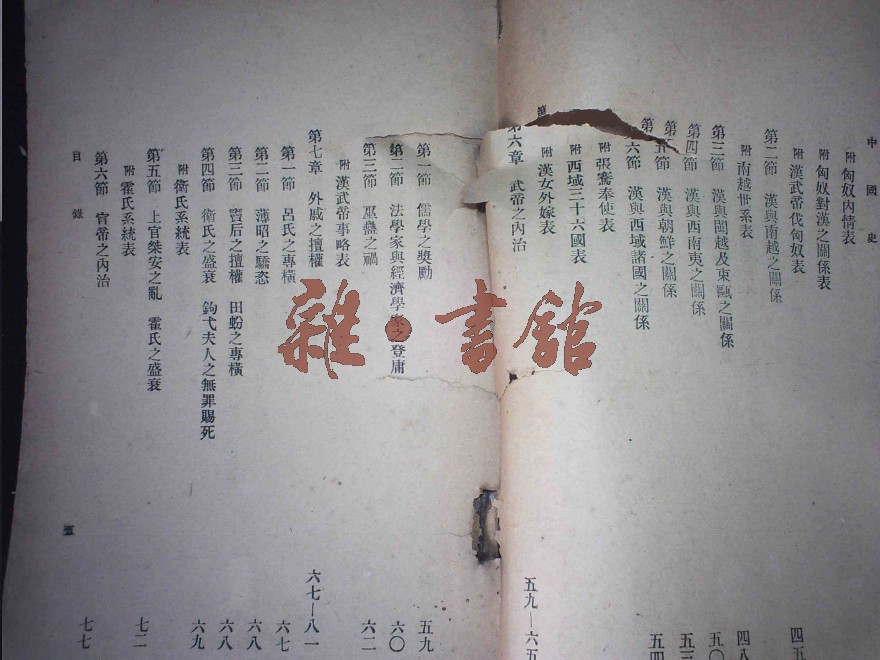 中國史
附 匈奴內情表
附 匈奴對漢之關係表
附 漢武帝伐匈奴表 四五
第二節 漢與南越之關係
附 南越世系表 四八
第三節 漢與閩越及東甌之關係 五〇
第四節 漢與西南夷之關係 五三
節 漢與朝鮮之關係 五四
六節 漢與西域諸國之關係
附 張騫奉使表
附 西域三十六國表
附 漢女外嫁表
第六章 武帝之內治 五九—六五
第一節 儒學之獎勵 五九
第二節 法學家與經濟學 之登庸 六〇
第三節 巫蠱之禍 六二
附 漢武帝事略表
第七章 外戚之擅權 六七—八一
第一節 呂氏之專橫 六七
第二節 薄昭之驕恣 六八
第三節 竇后之擅權 田蚡之專橫 六八
第四節 衛氏之盛衰 鉤弋夫人之無罪賜死 六九
附 衛氏系統表
第五節 上官桀安之亂 霍氏之盛衰 七二
附 霍氏系統表
第六節 宣帝之內治 七七
目錄
五
雜·書館